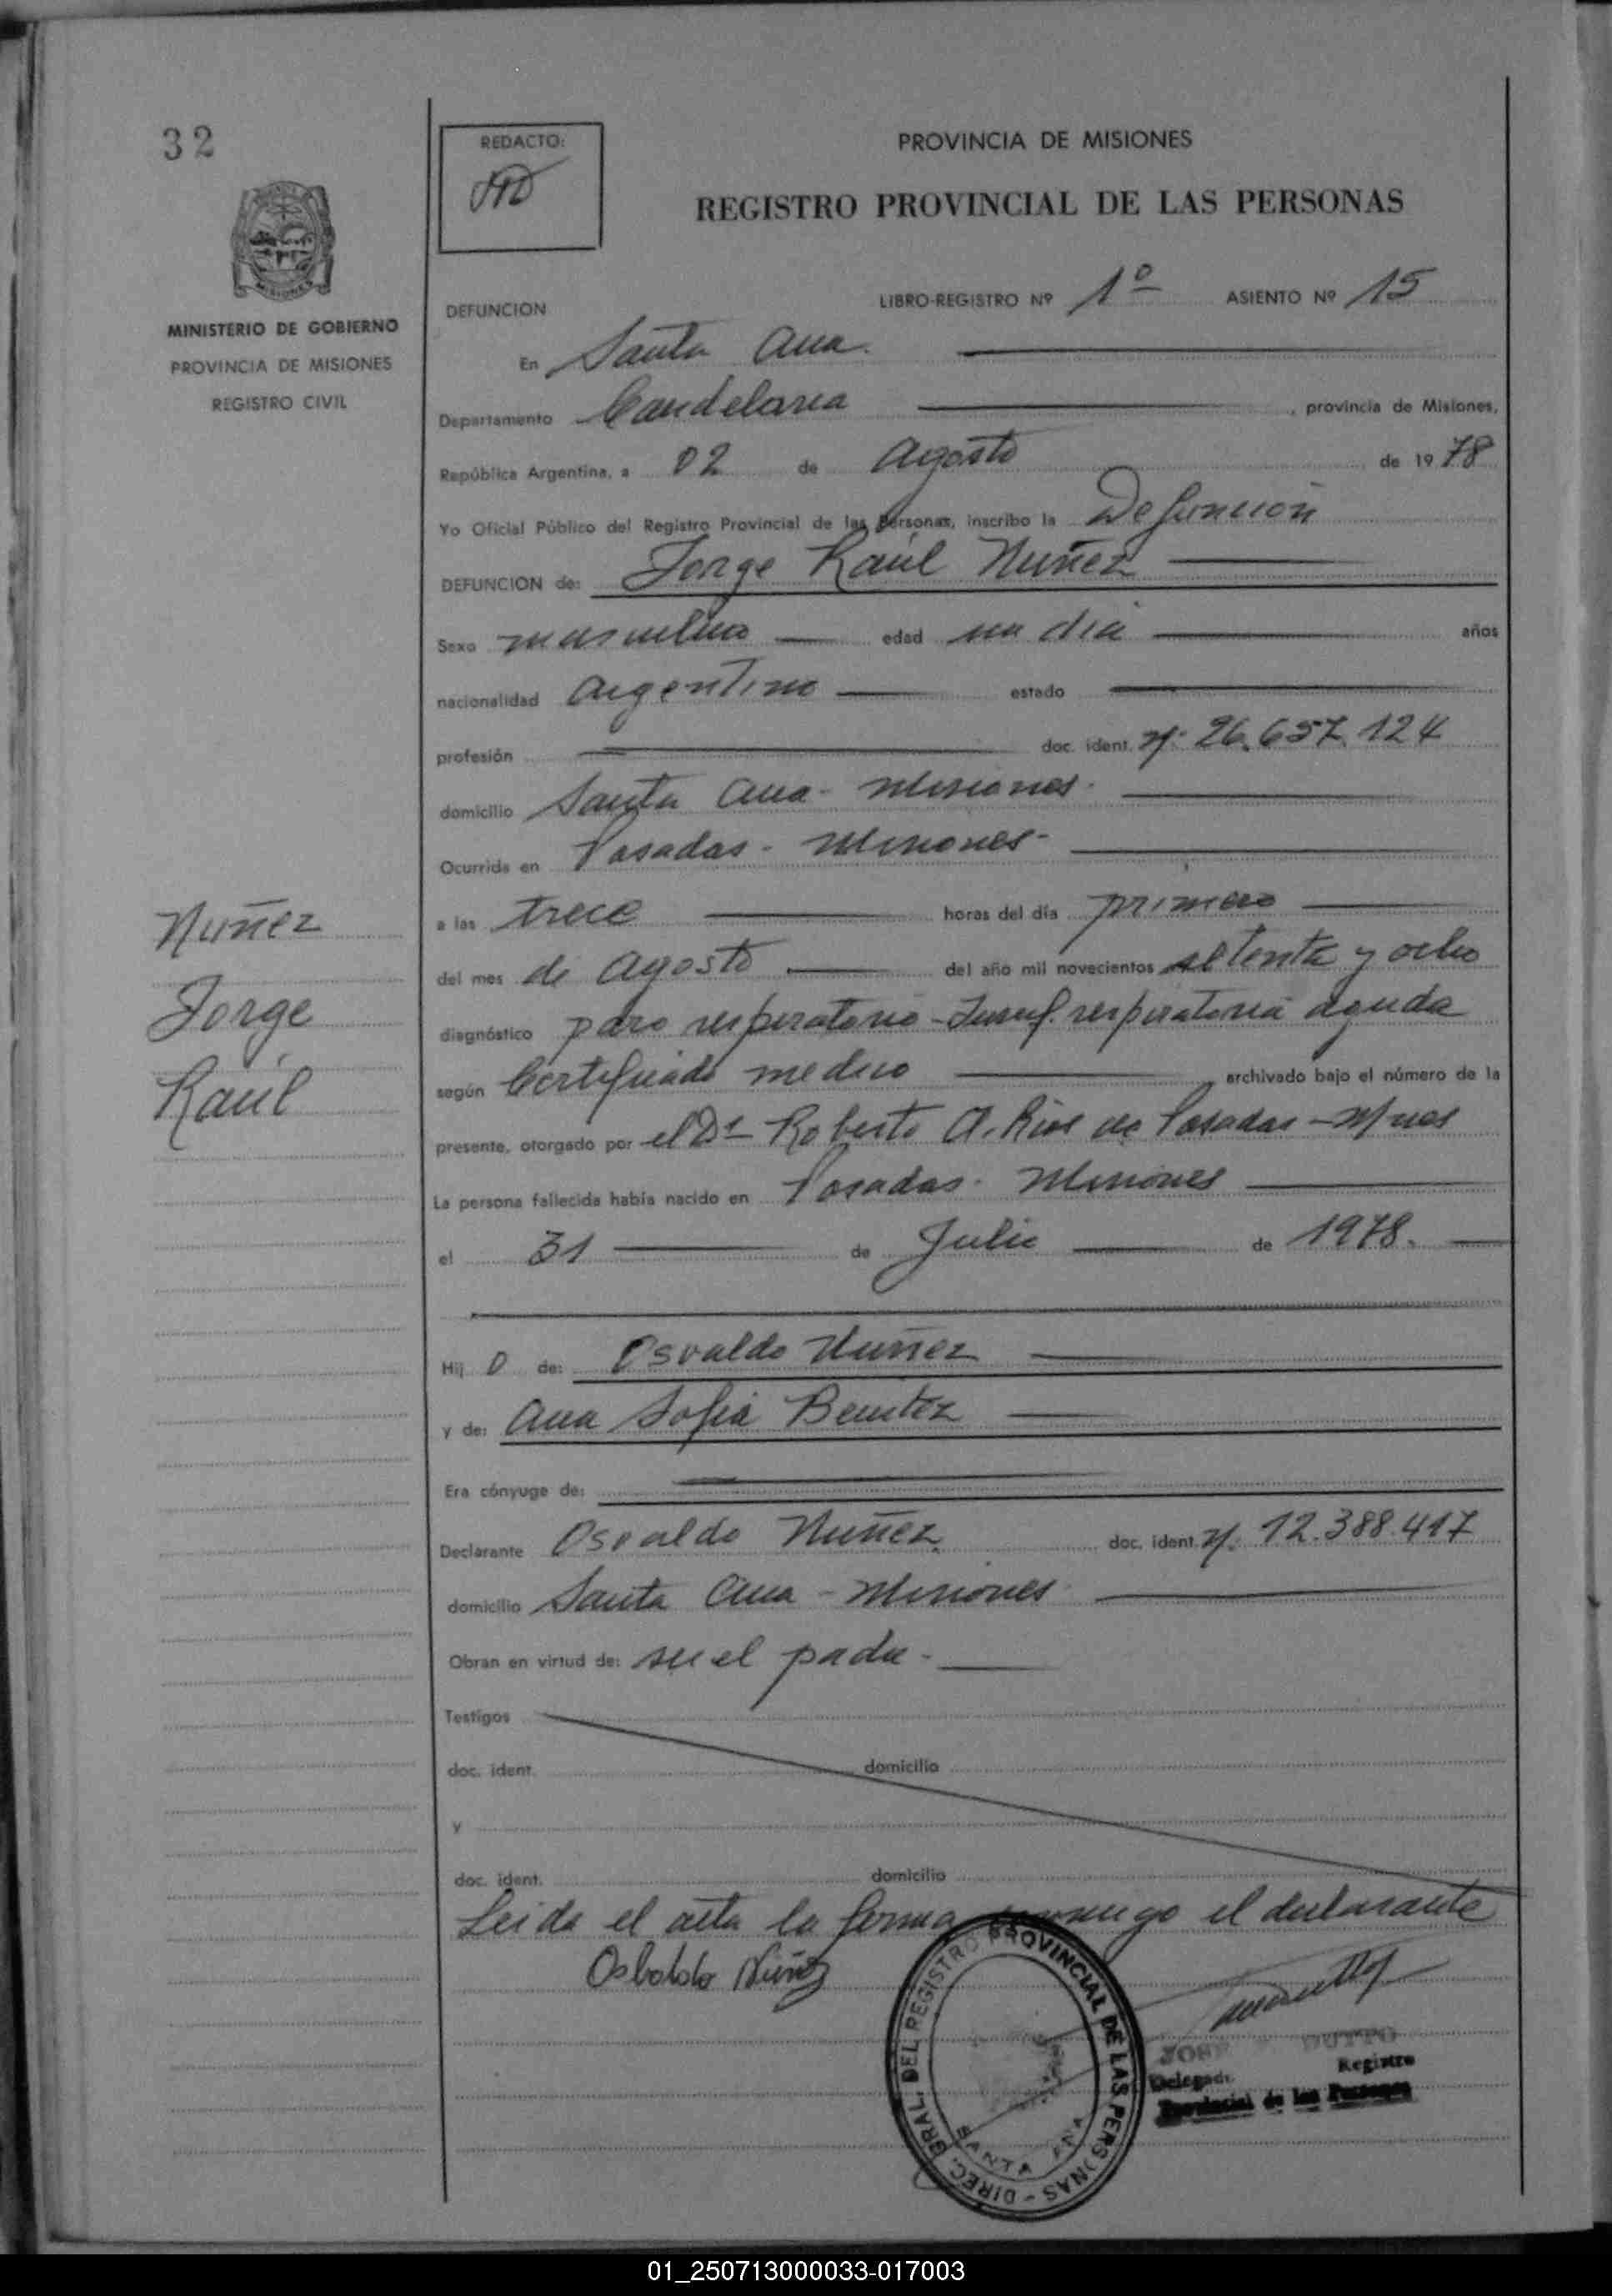 32
REDACTO:
PROVINCIA DE MISIONES
REGISTRO PROVINCIAL DE LAS PERSONAS
MISIONES
MINISTERIO DE GOBIERNO
PROVINCIA DE MISIONES
REGISTRO CIVIL
DEFUNCION LIBRO-REGISTRO Nº 1º ASIENTO Nº 15
En Santa Ana.
Departamento Candelaria, provincia de Misiones,
República Argentina, a 02 de Agosto de 1978
Yo Oficial Público del Registro Provincial de las Personas, inscribo la Defunción
DEFUNCION de: Jorge Raúl Nuñez
Sexo masculino edad un dia años
nacionalidad Argentino estado
profesión doc. ident. Nº 26.657.124
domicilio Santa Ana - Misiones.
Ocurrida en Posadas - Misiones -
a las trece horas del día primero
del mes de Agosto del año mil novecientos setenta y ocho
diagnóstico paro respiratorio - Insuf. respiratoria aguda
según Certificado medico archivado bajo el número de la
presente, otorgado por el Dr Roberto A. Rios de Posadas - Mnes
La persona fallecida había nacido en Posadas - Misiones
el 31 de Julio de 1978.
Nuñez
Jorge
Raúl
Hij o de: Osvaldo Nuñez
y de: Ana Sofia Benitez
Era cónyuge de:
Declarante Osvaldo Nuñez doc. ident. Nº 12.388.417
domicilio Santa Ana - Misiones
Obran en virtud de: ser el padre -
Testigos
doc. ident. domicilio
y
doc. ident. domicilio
Leida el acta la firma conmigo el declarante
Osbaldo Núñez
DIREC. GRAL. DEL REGISTRO PROVINCIAL DE LAS PERSONAS -
SANTA ANA
JOSE DUTTO
Delegado Registro
Provincial de las Personas
01_250713000033-017003